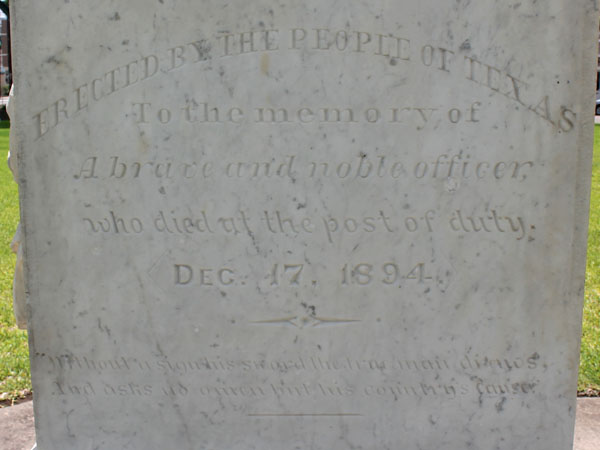 ERECTED BY THE PEOPLE OF TEXAS
To the memory of
A brave and noble officer,
who died at the post of duty.
DEC. 17, 1894.
"Without a sign his sword the brave man draws,
And asks no omen but his country's cause."